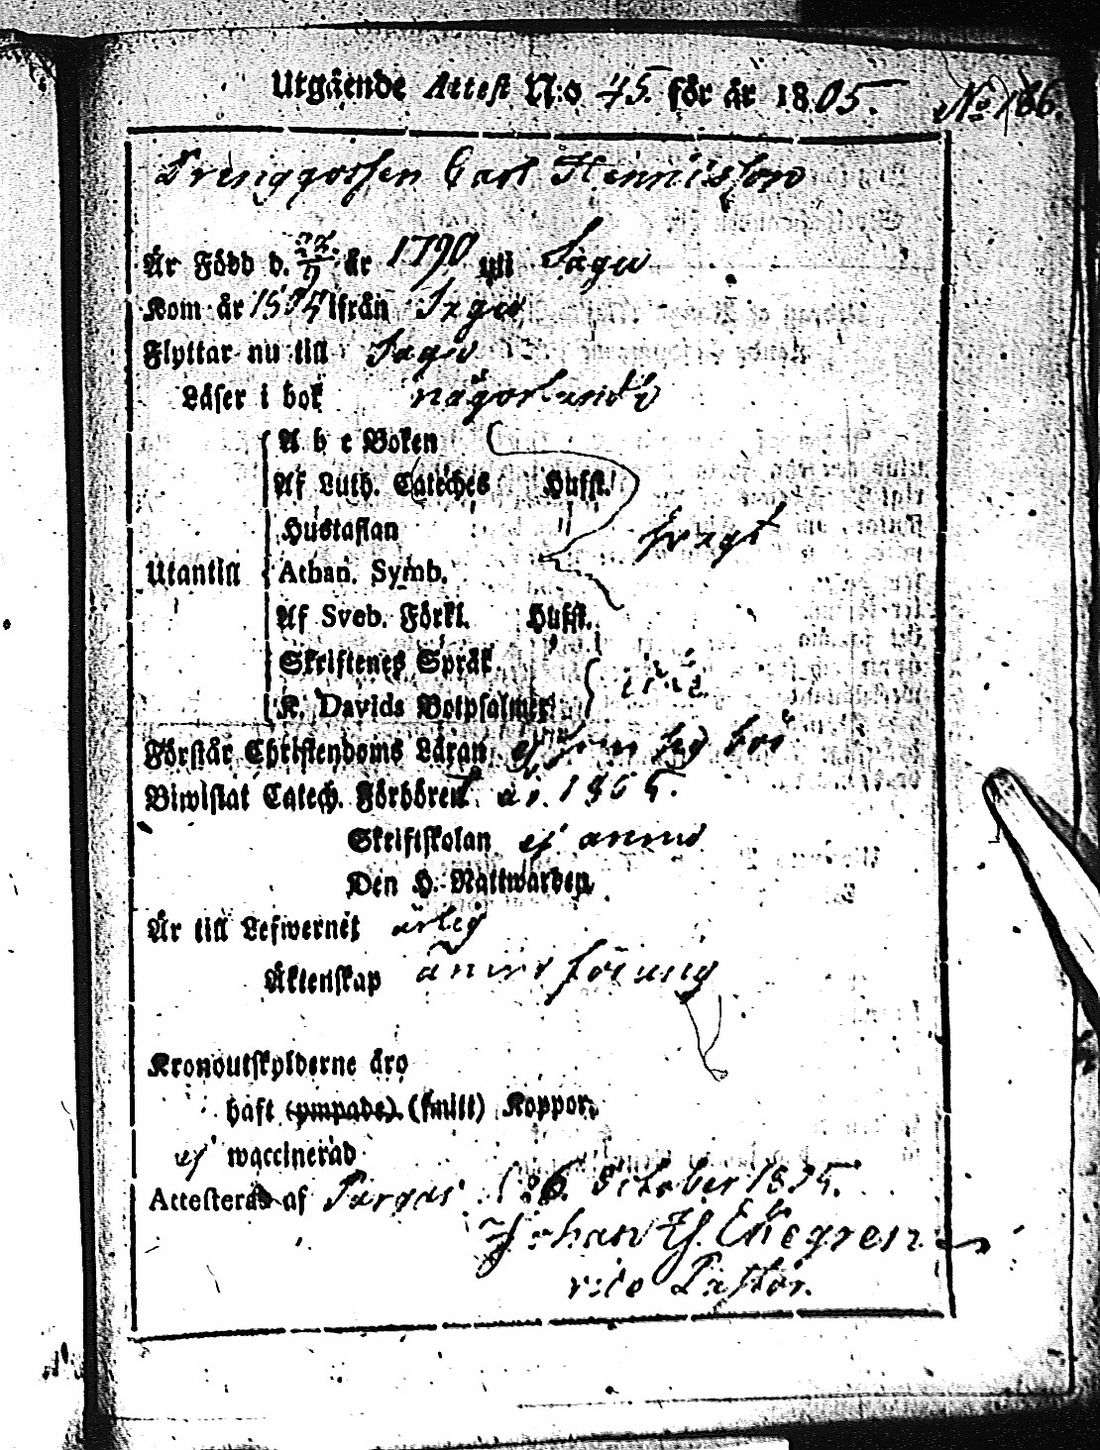 Utgående Attest N:o 45. för år 1805. No 186.
Drenggossen Carl Hennisson
Är Född d. 22/9 år 1790 uti Sagu
Kom år 1804 ifrån Sagu
Flyttar nu till Sagu
Läser i bok någorlunda
A b c Boken
Af Luth. Cateches Hufst.
Hustaflan frågt
Utantill Athan. Symb.
Af Sveb. Förkl. Hufst.
Skriftenes Språk
K. Davids Botpsalmer
Förstår Christendoms Läran ej som sig bör
Biwistat Catech. Förhören år 1805.
Skriftskolan ej ännu
Den H. Nattwarden
Är till Lefwernet ärlig
Äktenskap ännu för ung
Kronoutskylderne äro
haft (ympade) (smitt) Koppor.
ej waccinerad
Attesteras af Pargas d. 26. October 1805.
Johan H. Ehegren
vice Pastor.